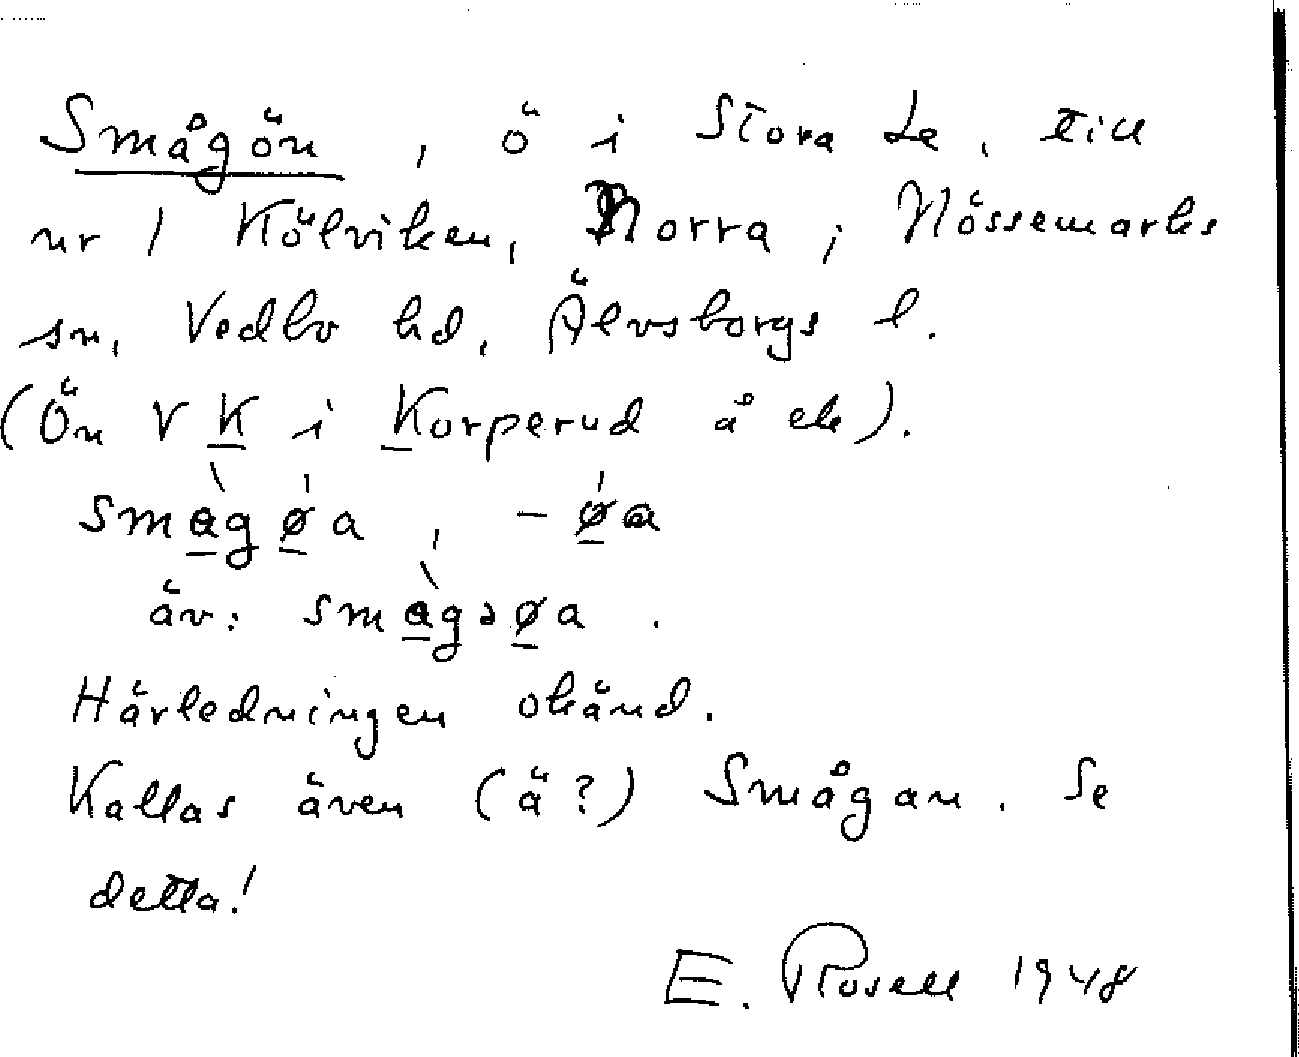 Smågön, ö i Stora Le, till
nr 1 Kölviken, Norra, i Nössemarks
sn, Vedbo hd, Älvsborgs l.
(Ön V K i Korperud å ek).
smàgǿa, -ǿa
äv: smàgəøa.
Härledningen okänd.
Kallas även (ä?) Smågan. Se
detta!
E. Rosell 1948